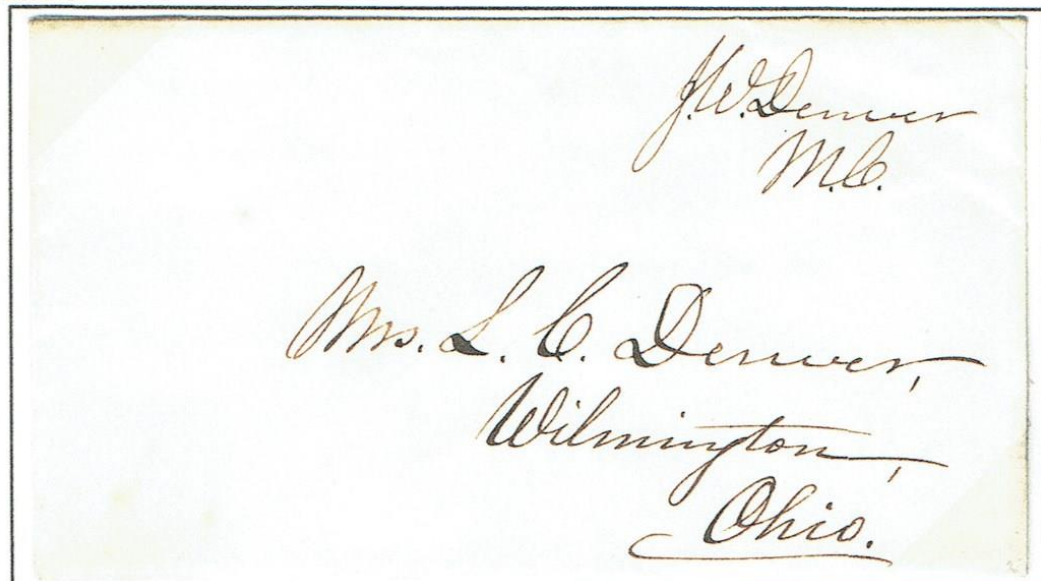 J.W. Denver
M.C.
Mrs. L. C. Denver,
Wilmington,
Ohio.